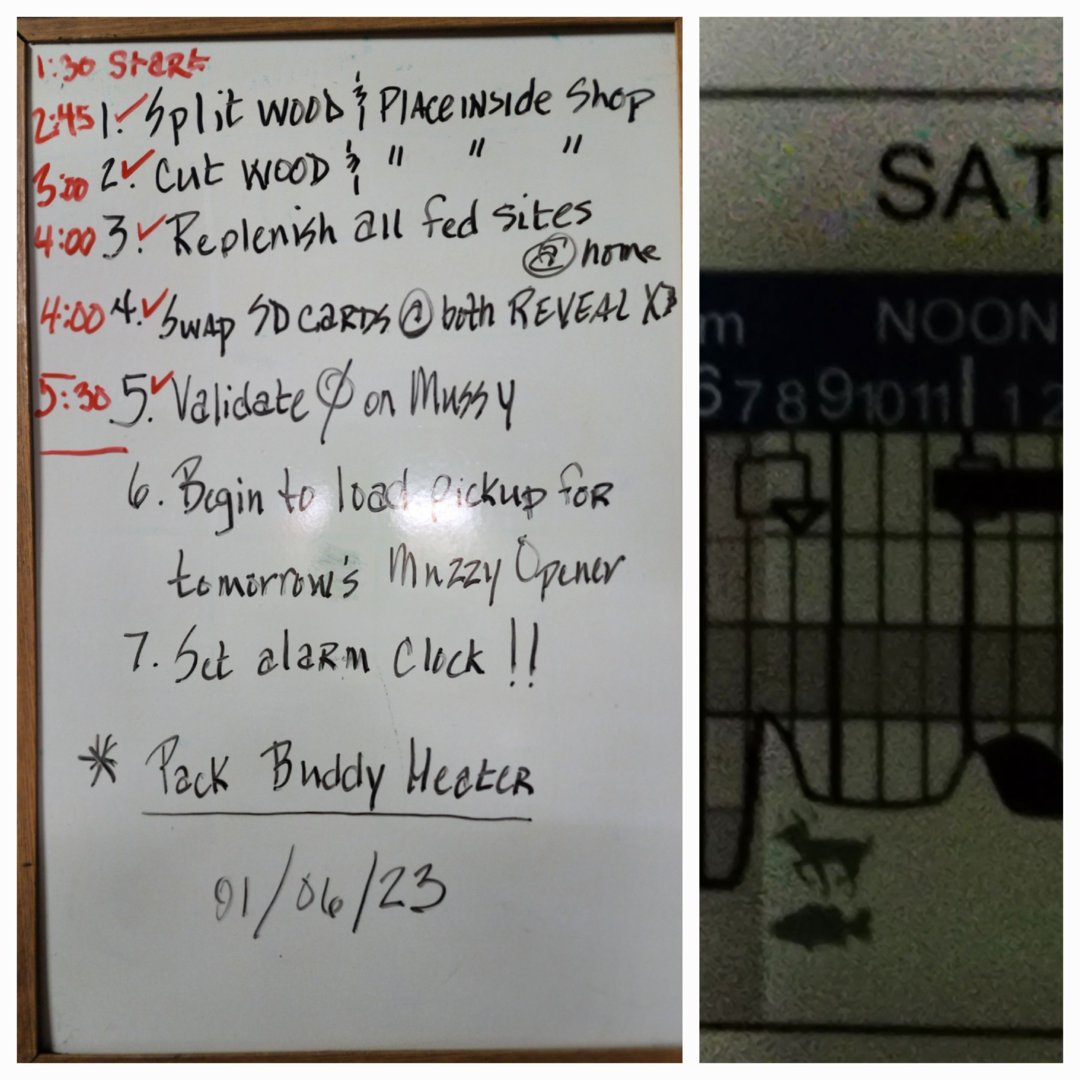 1:30 Start
2:45 1. ✓ Split wood & Place inside Shop
3:00 2. ✓ Cut wood & " " "
4:00 3. ✓ Replenish all fed sites
@ home
4:00 4. ✓ Swap SD cards @ both REVEAL X's
5:30 5. ✓ Validate Ø on Mussy
6. Begin to load pickup for
tomorrow's Muzzy Opener
7. Set alarm clock !!
* Pack Buddy Heater
01/06/23
SAT
m NOON
6 7 8 9 10 11 1 2